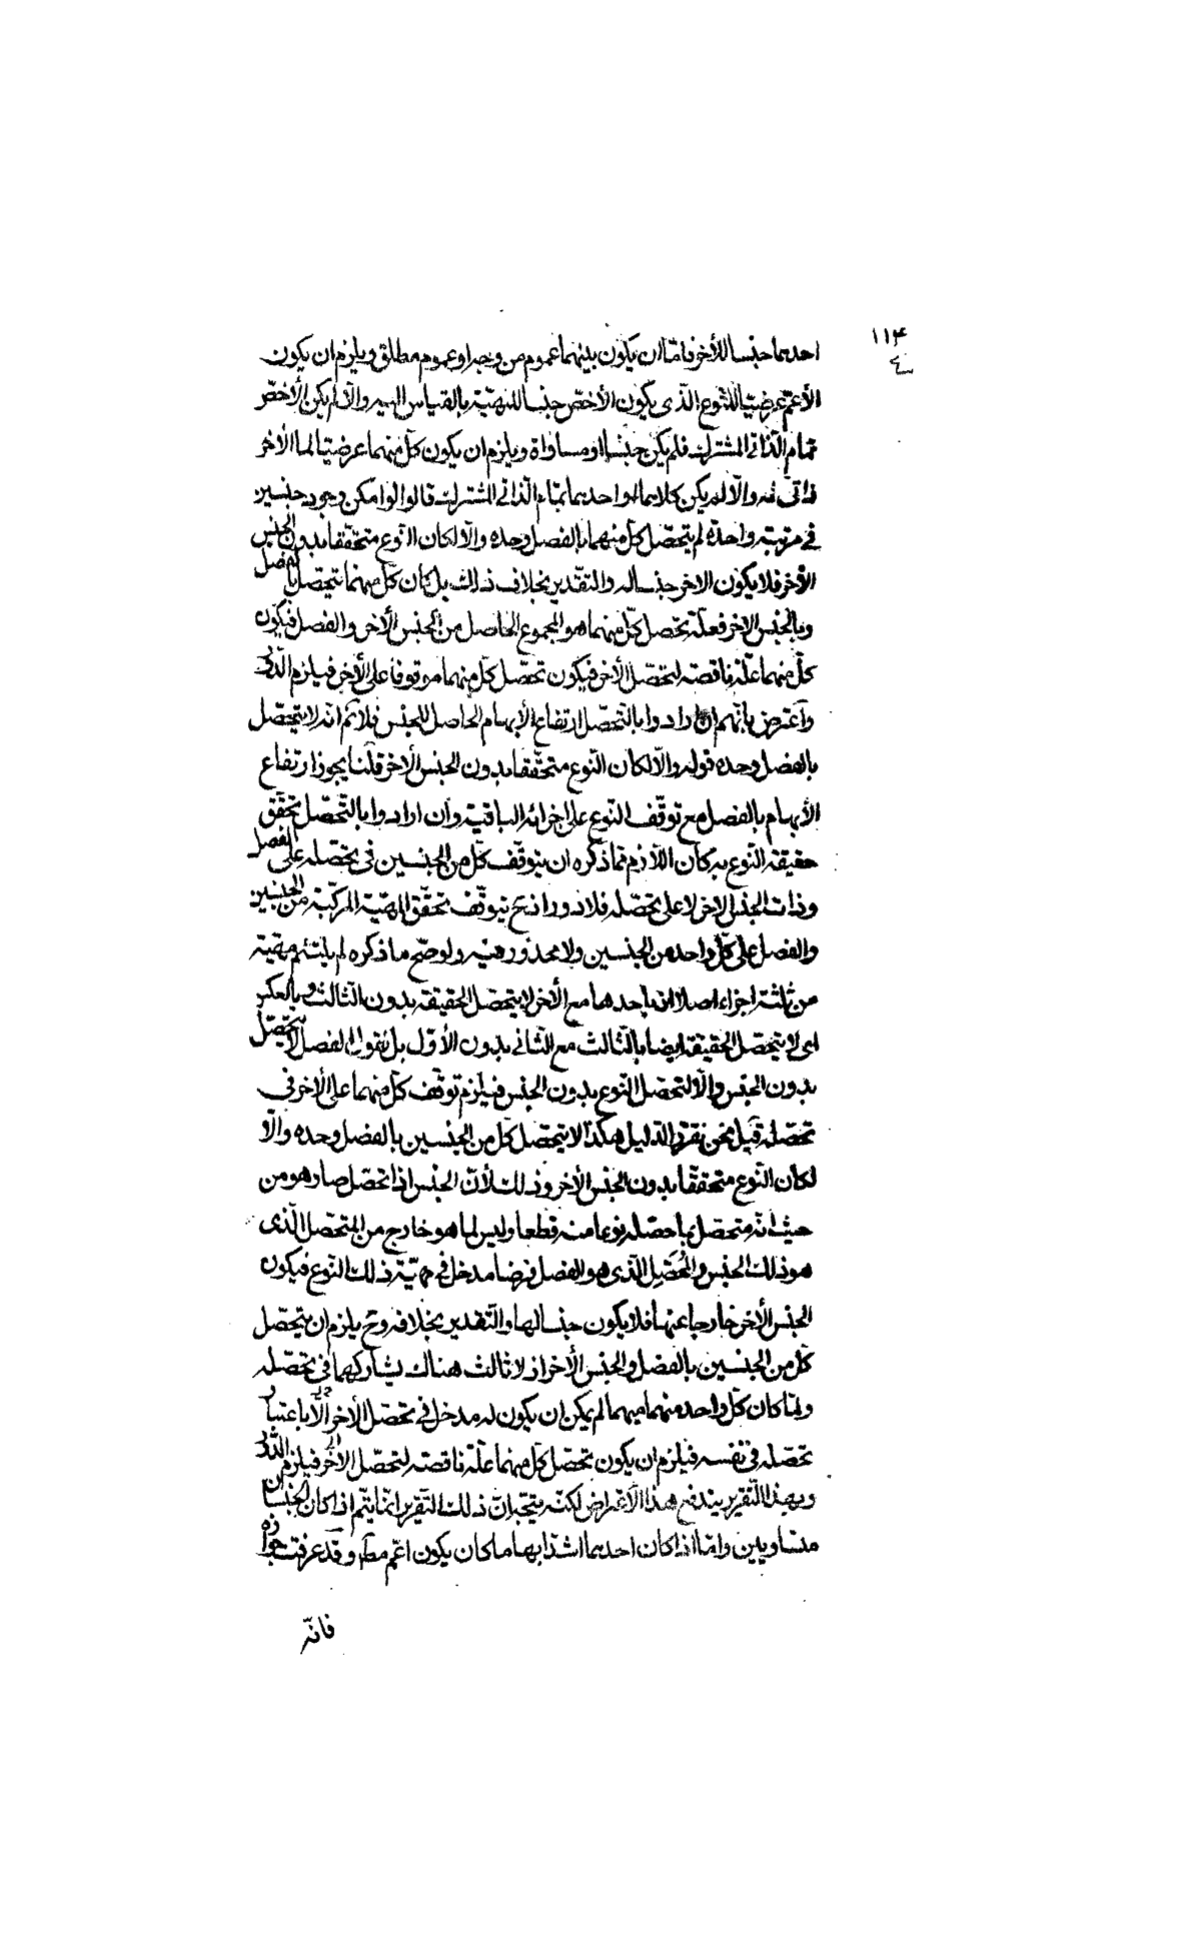 ١١٤
احدهما جنسا للأخر فامّا ان يكون بينهما عموم من وجه او عموم مطلق ويلزم ان يكون
الأعمّ عرضيّا للنّوع الّذى يكون الأخصّ جنسا للمهيّة بالقياس اليه والّا لم يكن الأخصّ
تمام الذّاتى المشترك فلم يكن جنسا او مساواة ويلزم ان يكون كلّ منهما عرضيّا لما الأخر
ذاتىّ له والّا لم يكن كلاهما او احدهما تمام الذّاتى المشترك قالوا لو امكن وجود جنسين
فى مرتبة واحدة لم يتحصّل كلّ منهما بالفصل وحده والّا لكان النّوع متحقّقا بدون الجنس
الأخر فلا يكون الاخر جنسا له والتقدير بخلاف ذلك بل كان كلّ منهما يتحصّل بالفصل
وبالجنس الاخر فعلّة تحصّل كلّ منهما هو المجموع الحاصل من الجنس الأخر والفصل فيكون
كلّ منهما علّة ناقصة لتحصّل الأخر فيكون تحصّل كلّ منهما موقوفا على الأخر فيلزم الدّور
وأعترض بانّهم ان ارادوا بالتحصّل ارتفاع الأبهام الحاصل للجنس فلا نم انّه لا يتحصّل
بالفصل وحده قوله والّا لكان النّوع متحقّقا بدون الجنس الأخر قلنا يجوز ارتفاع
الأبهام بالفصل مع توقّف النّوع على اجزائه الباقية وان ارادوا بالتّحصّل تحقّق
حقيقة النّوع به كان اللّازم ممّا ذكره ان يتوقّف كلّ من الجنسين فى تحصّله على الفصل
وذات الجنس الاخر لا على تحصّله فلا دور اذ ح يتوقّف تحقّق المهيّة المركّبة من الجنسين
والفصل على كلّ واحد من الجنسين ولا محذور فيه ولو صحّ ما ذكره لم يلتئم مهيّة
من ثلثة اجزاء اصلا اذ باحدهما مع الأخر لا يتحصّل الحقيقة بدون الثالث وبالعكس
اى لا يتحصّل الحقيقة ايضا بالثّالث مع الثّانى بدون الأوّل بل نقول الفصل لا يحصّل
بدون الجنس والّا لتحصّل النّوع بدون الجنس فيلزم توقّف كلّ منهما على الأخر فى
تحصّله قيل نحن نقرّر الدّليل هكذا لا يتحصّل كل من الجنسين بالفصل وحده والّا
لكان النّوع متحقّقا بدون الجنس الأخر وذلك لأنّ الجنس اذا تحصّل صار هو من
حيث انّه متحصّل بما حصّله نوعا منه قطعا وليس لما هو خارج من المتحصّل الّذى
هو ذلك الجنس والمُحصِّل الّذى هو الفصل فرضا مدخل فى مهيّة ذلك النّوع فيكون
الجنس الأخر خارجا عنها فلا يكون جنسا لها والتقدير بخلافه وح يلزم ان يتحصّل
كل من الجنسين بالفصل والجنس الأخر اذ لا ثالث هناك يشاركهما فى تحصّله
ولمّا كان كلّ واحد منهما مبهما لم يمكن ان يكون له مدخل فى تحصّل الأخر الّا باعتبار
تحصّله فى نفسه فيلزم ان يكون تحصّل كلّ منهما علّة ناقصة لتحصّل الأخر فيلزم الدّور
وبهذا التّقرير يندفع هذا الاعتراض لكنّه يتّجه انّ ذلك التقرير انّما يتمّ اذا كان الجنسان
متساويين وامّا اذا كان احدهما اشدّ ابهاما كان يكون اعمّ مطلقا وقد عرفت جوازه
فانّه